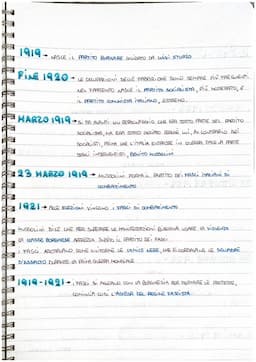 1919 → NASCE IL PARTITO POPOLARE GUIDATO DA LUIGI STURZO
FINE 1920 → LE OCCUPAZIONI DELLE FABBRICHE SONO SEMPRE PIÙ FREQUENTI.
NEL FRATTEMPO NASCE IL PARTITO SOCIALISTA, PIÙ MODERATO, E
IL PARTITO COMUNISTA ITALIANO, ESTREMO.
MARZO 1919 → SI FA AVANTI UN PERSONAGGIO CHE ERA STATO PARTE DEL PARTITO
SOCIALISTA, MA ERA STATO ESPULSO PERCHÉ LUI, AL CONTRARIO DEI
SOCIALISTI, PRIMA CHE L'ITALIA ENTRASSE IN GUERRA FACEVA PARTE
DEGLI INTERVENTISTI, BENITO MUSSOLINI
23 MARZO 1919 → MUSSOLINI FORMA IL PARTITO DEI FASCI ITALIANI DI
COMBATTIMENTO
1921 → ALLE ELEZIONI VINCONO I FASCI DI COMBATTIMENTO
MUSSOLINI DICE CHE PER SUPERARE LE MANIFESTAZIONI BISOGNA USARE LA VIOLENZA
LA CLASSE BORGHESE APPOGGIA SUBITO IL PARTITO DEI FASCI
I FASCI ADOTTANO COME UNIFORME LE CAMICIE NERE, CHE RICORDAVANO LE SQUADRE
D'ASSALTO DURANTE LA PRIMA GUERRA MONDIALE
1919-1921 → I FASCI SI ALLEANO CON LA BORGHESIA PER FERMARE LE PROTESTE,
COMINCIA COSÌ L'ASCESA DEL REGIME FASCISTA.